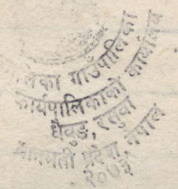 गाउँपालिका
कार्यपालिकाको कार्यालय
धैबुङ, रसुवा
बागमती प्रदेश, नेपाल
२०७३